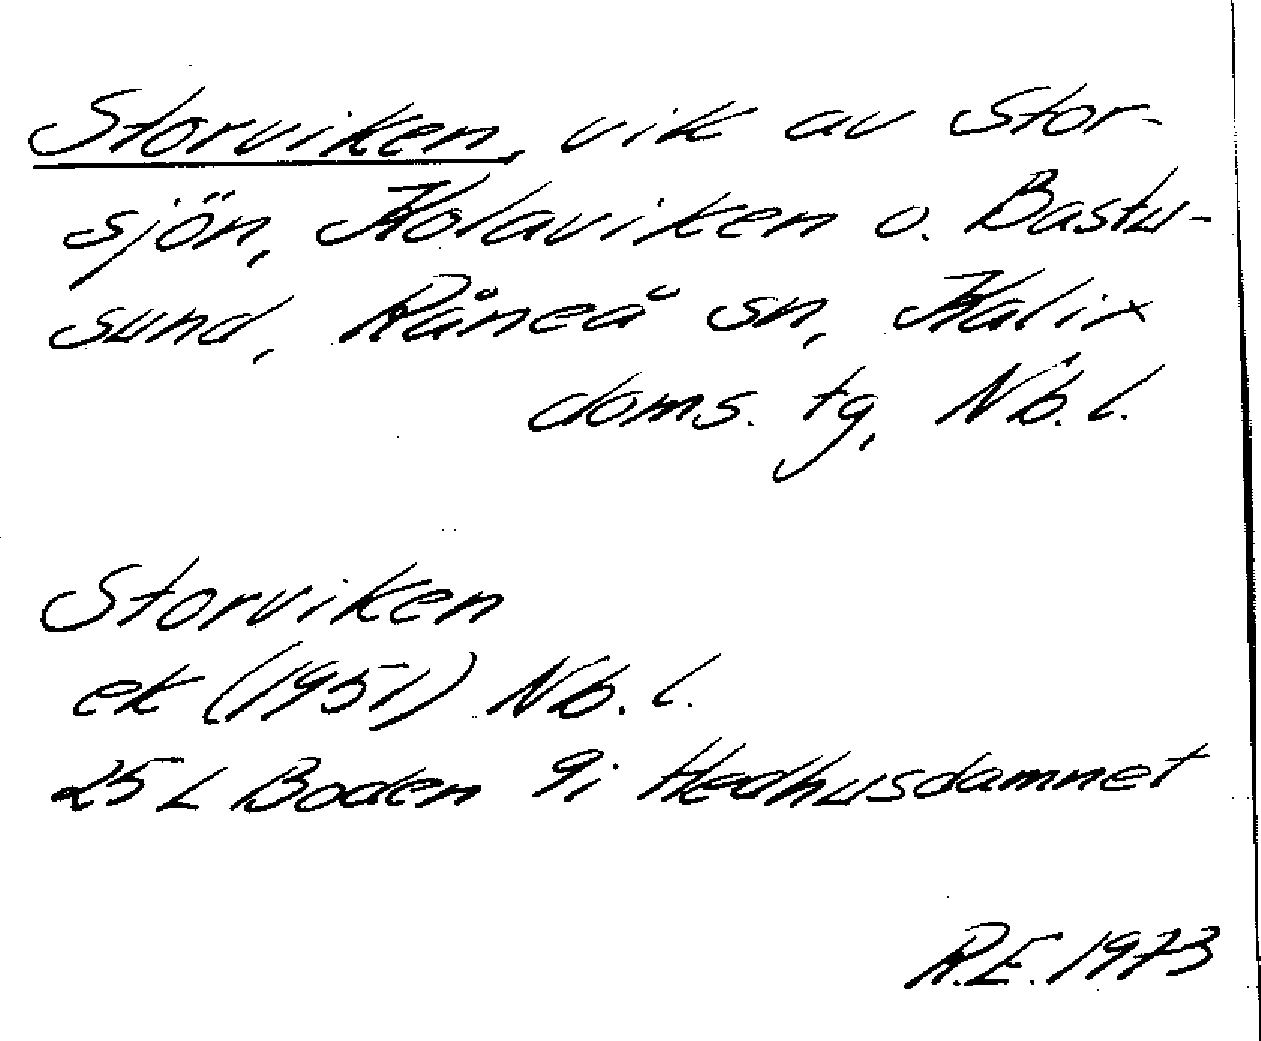 Storviken, vik av Stor-
sjön, Kolaviken o. Bastu-
sund, Råneå sn, Kalix
doms. tg, Nb. l.
Storviken
ek (1951) Nb. l.
25 L Boden 9i Hedhusdamnet
R.E. 1973